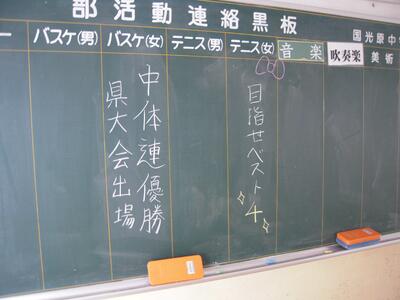 部活動連絡黒板
国光原中
ー
バスケ(男)
バスケ(女)
テニス(男)
テニス(女)
音楽
吹奏楽
美術
中体連優勝
県大会出場
目指せベスト4